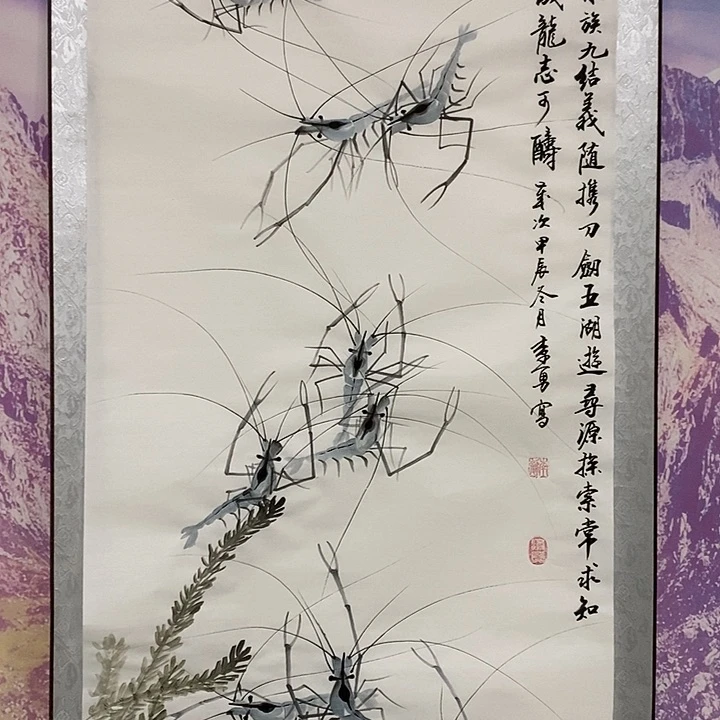 族九结義随携刀劍五湖遊尋源探索常求知
龍志可酬
歲次甲辰冬月李勇寫